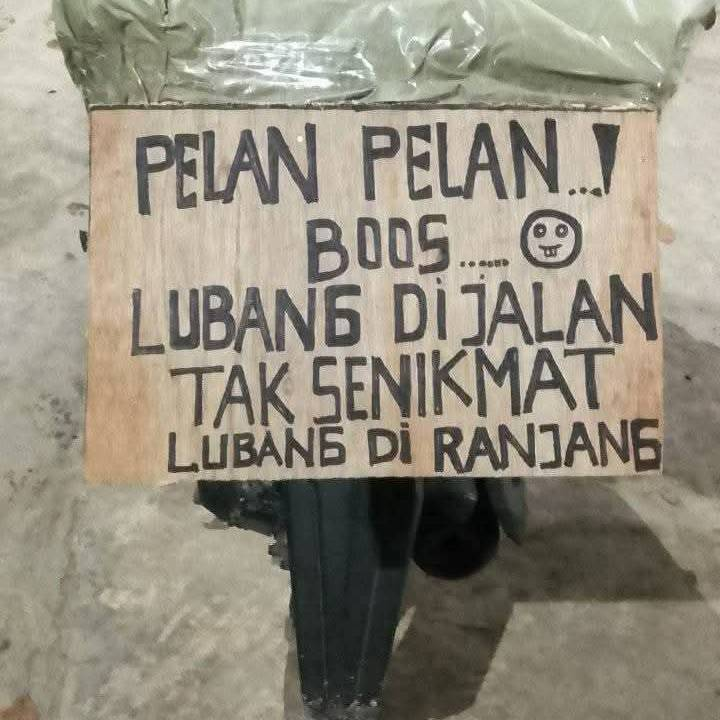 PELAN PELAN...!
BOOS......
LUBANG DiJALAN
TAK SENIKMAT
LUBANG Di RANJANG